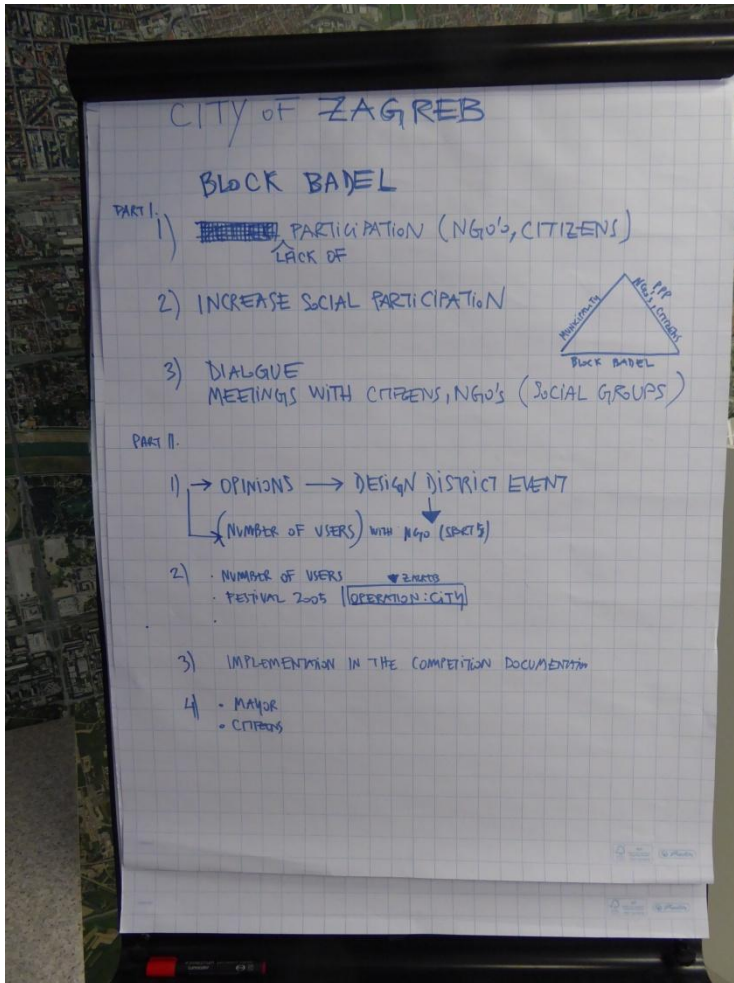 CITY OF ZAGREB
BLOCK BADEL
PART I.
1) PARTICIPATION (NGO's, CITIZENS)
LACK OF
2) INCREASE SOCIAL PARTICIPATION
MUNICIPALITY
PPP
NGO's, CITIZENS
BLOCK BADEL
3) DIALOGUE
MEETINGS WITH CITIZENS, NGO's (SOCIAL GROUPS)
PART II.
1) → OPINIONS → DESIGN DISTRICT EVENT
(NUMBER OF USERS) WITH NGO
2) · NUMBER OF USERS
· FESTIVAL 2005 OPERATION:CITY
3) IMPLEMENTATION IN THE COMPETITION DOCUMENTATION
4) · MAYOR
· CITIZENS